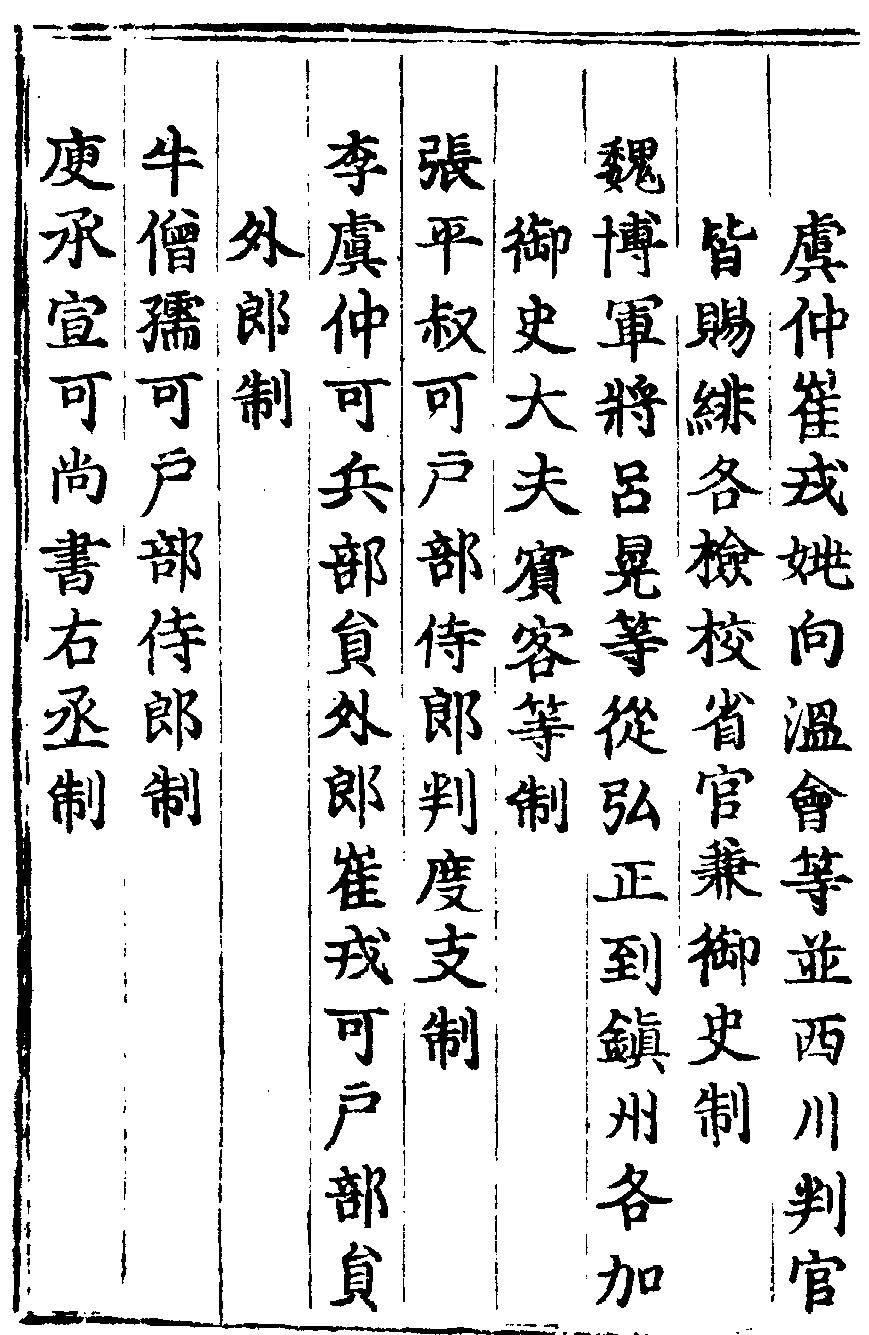 虞仲崔戎姚向溫會等並西川判官
皆賜緋各檢校省官兼御史制
魏博軍將呂晃等從弘正到鎮州各加
御史大夫賓客等制
張平叔可戶部侍郎判度支制
李虞仲可兵部員外郎崔戎可戶部員
外郎制
牛僧孺可戶部侍郎制
庾承宣可尚書右丞制